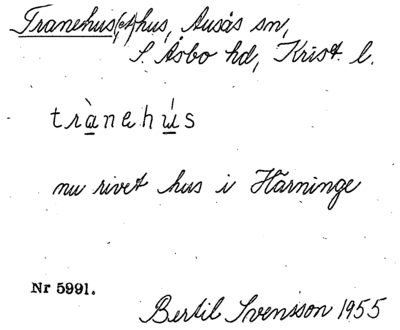 Tranehus(et) hus, Ausås sn,
S. Åsbo hd, Krist. l.
trànehús
nu rivet hus i Härninge
Nr 5991.
Bertil Svensson 1955